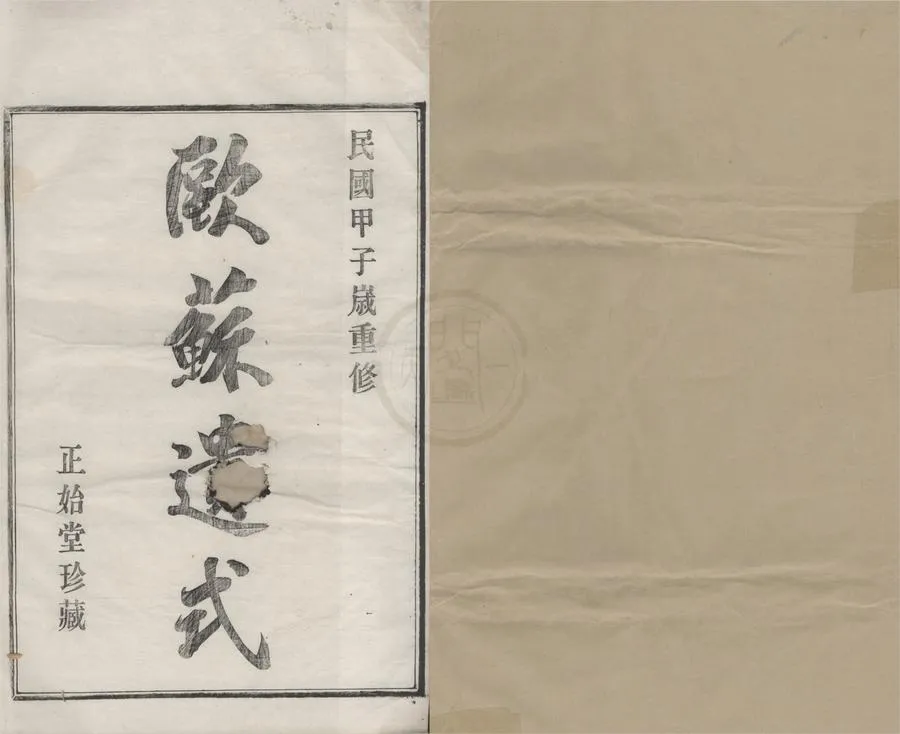 民國甲子嵗重修
歐蘇遺式
正始堂珍藏